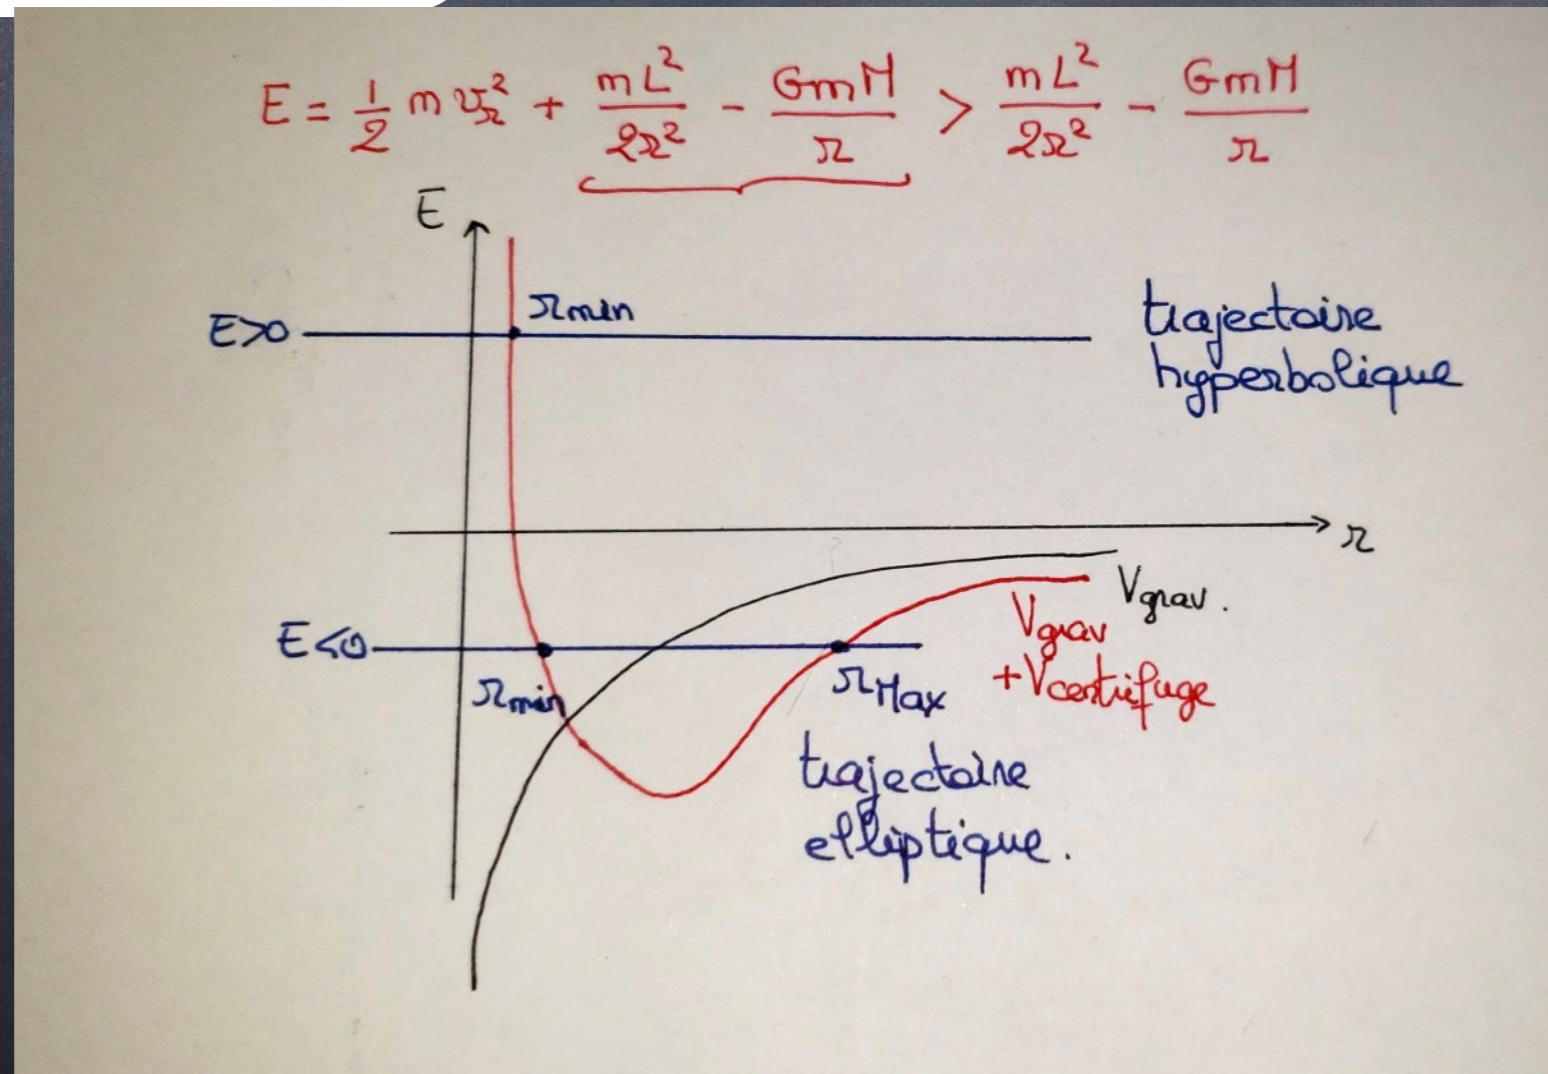 E = 1/2 m v_r² + mL²/2r² - GmM/r > mL²/2r² - GmM/r
E
r min
E>0
trajectoire
hyperbolique
r
V grav.
E<0
V grav
+ V centrifuge
r min
r Max
trajectoire
elliptique.